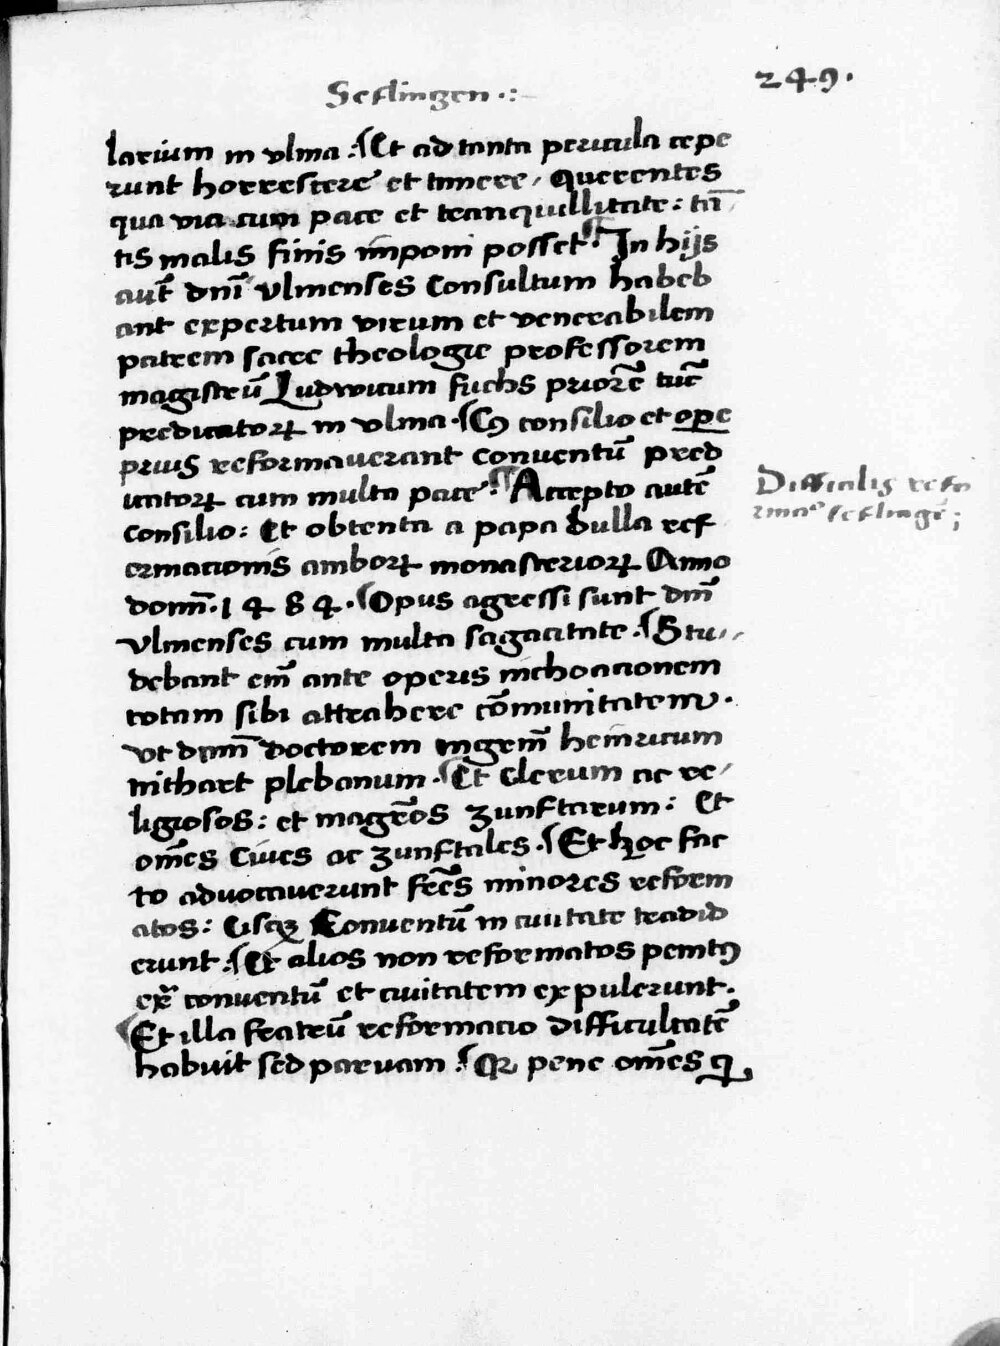 Seflingen .:
249.
larium in vlma : Et ad tanta pericula cepe
runt horrescere et timere, Querentes
qua via cum pace et tranquillitate : tā
tis malis finis imponi posset. In hijs
aut̄ dn̄i vlmenses Consultum habeb
ant expertum virum et venerabilem
patrem sacre theologie professorem
magistrū Ludwicum fuchs priorē tūc
predicatorꝝ in vlma . Cꝰ consilio et ope
prius reformauerant conuentū pred
icatorꝝ cum multa pace . Accepto autē
Consilio : Et obtenta a papa bulla ref
ormationis amborꝝ monasteriorꝝ Anno
domī . 1484 . Opus agressi sunt dn̄i
vlmenses cum multa sagacitate . Stu
debant em̄ ante operis inchoacionem
totam sibi attrahere cōmunitatem .
vt dn̄m doctorem mgrm̄ heinricum
nithart plebanum . Et Clerum ac re
ligiosos : et magrōs zunftarum : Et
om̄es Ciues ac zunftales . Et hoc fac
to aduocauerunt fr̄es minores reform
atos : Eisqꝫ Conuentū in ciuitate tradid
erunt . Et alios non reformatos penitꝰ
ex̄ conuentū et ciuitatem expulerunt .
Et illa fratrū reformacio difficultatē
habuit sed paruam . Qꝛ pene om̄es q
Difficilis refo
rmaᵒ seflingē ;